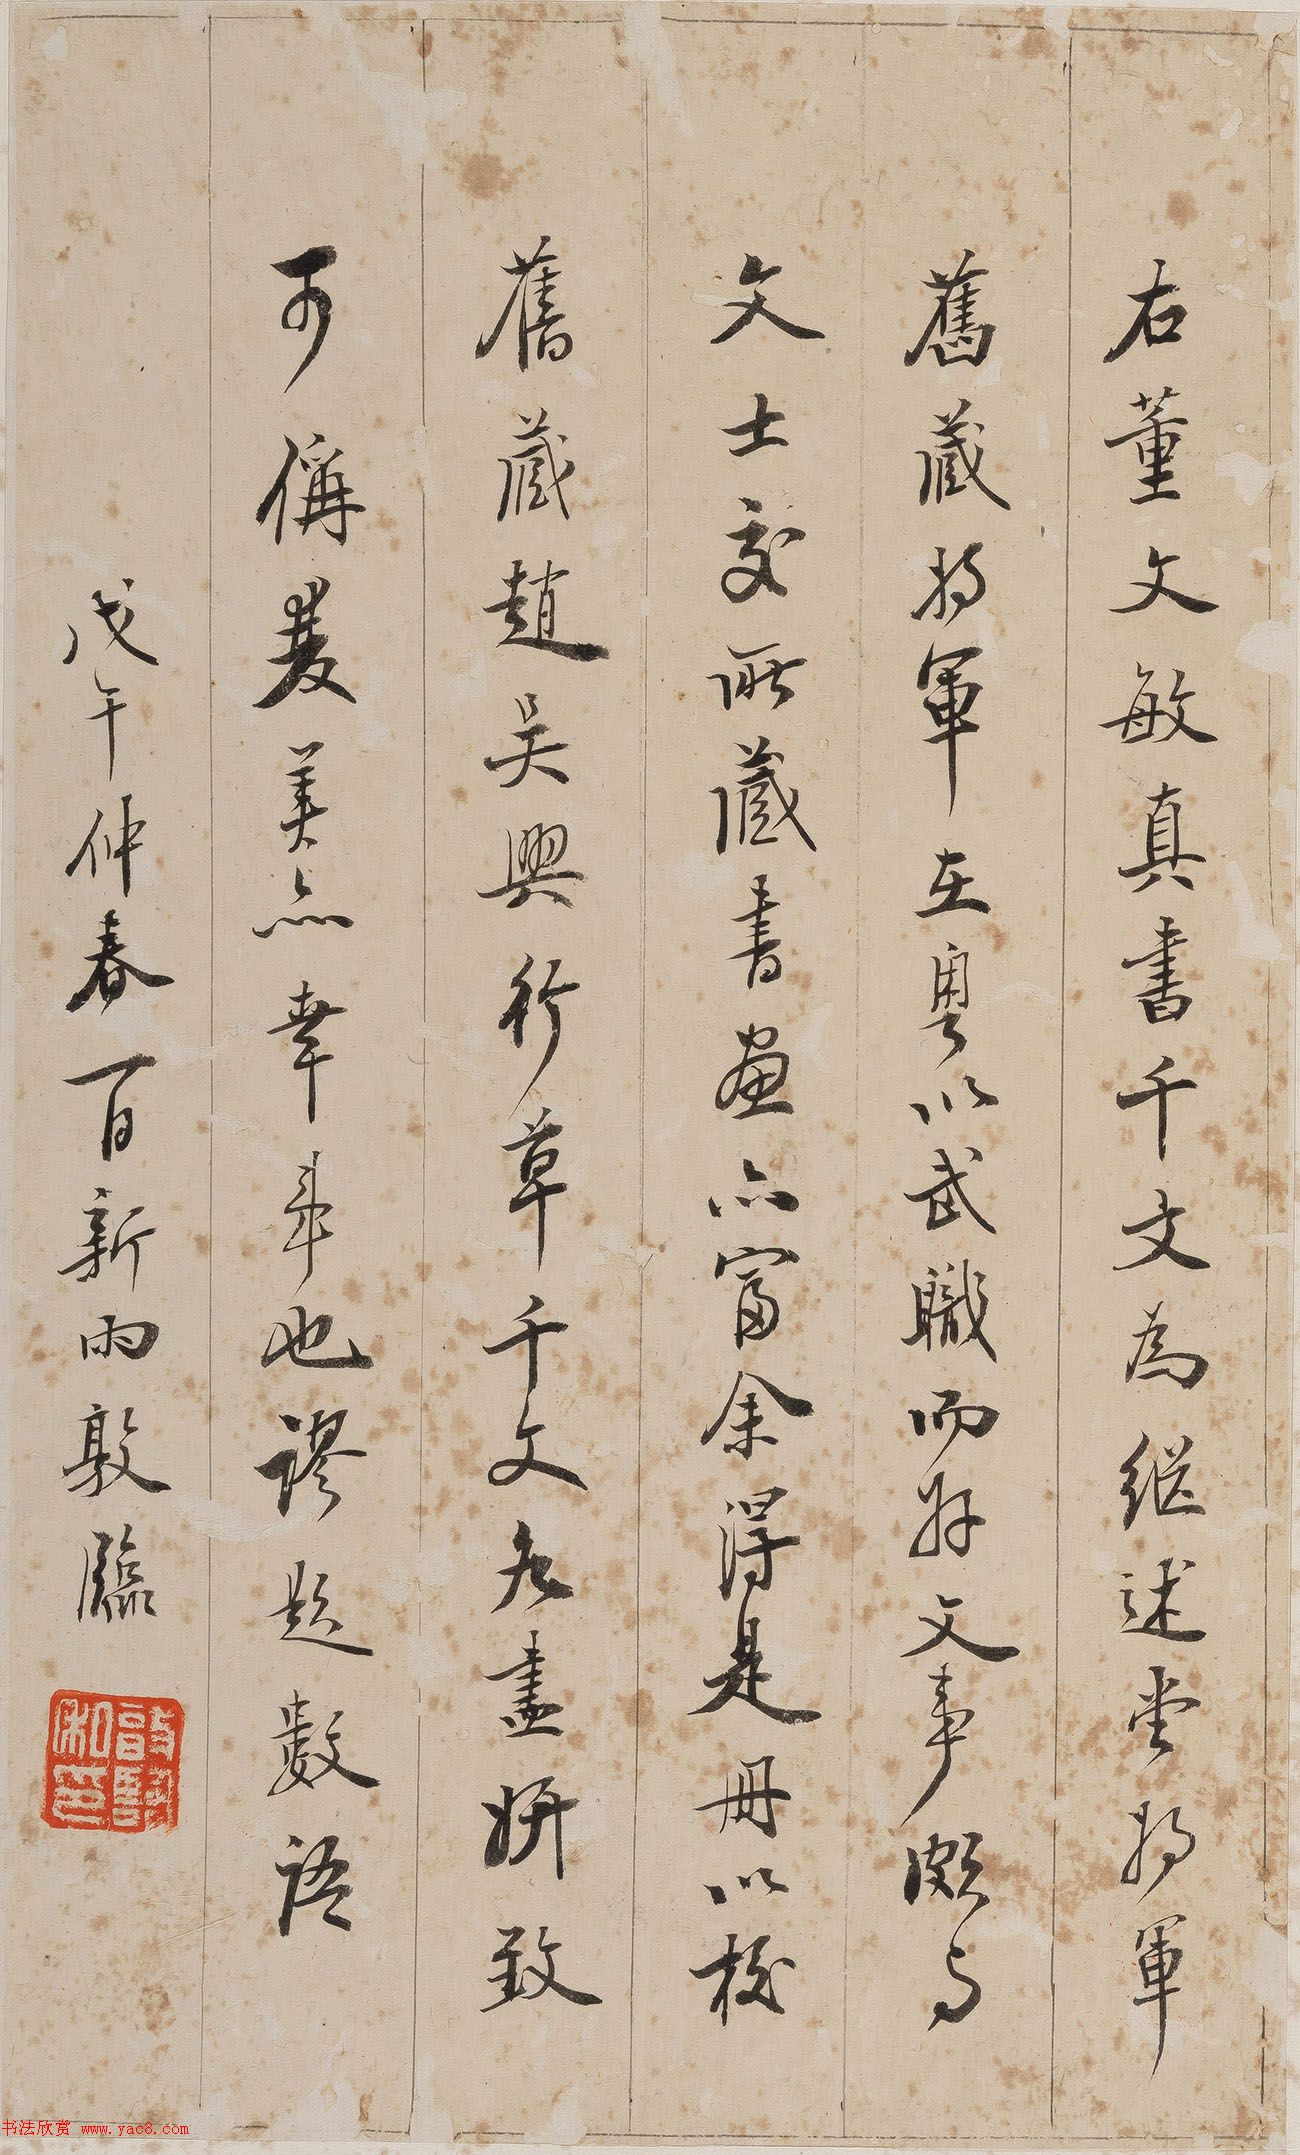 右董文敏真書千文為繼述堂將軍
舊藏將軍在粵以武職而好文事頗與
文士交所藏書畫亦富余得是冊以校
舊藏趙吳興行草千文各盡妍致
可稱雙美亦幸事也謬題數語
戊午仲春百新雨敦臨
书法欣赏 www.yac8.com